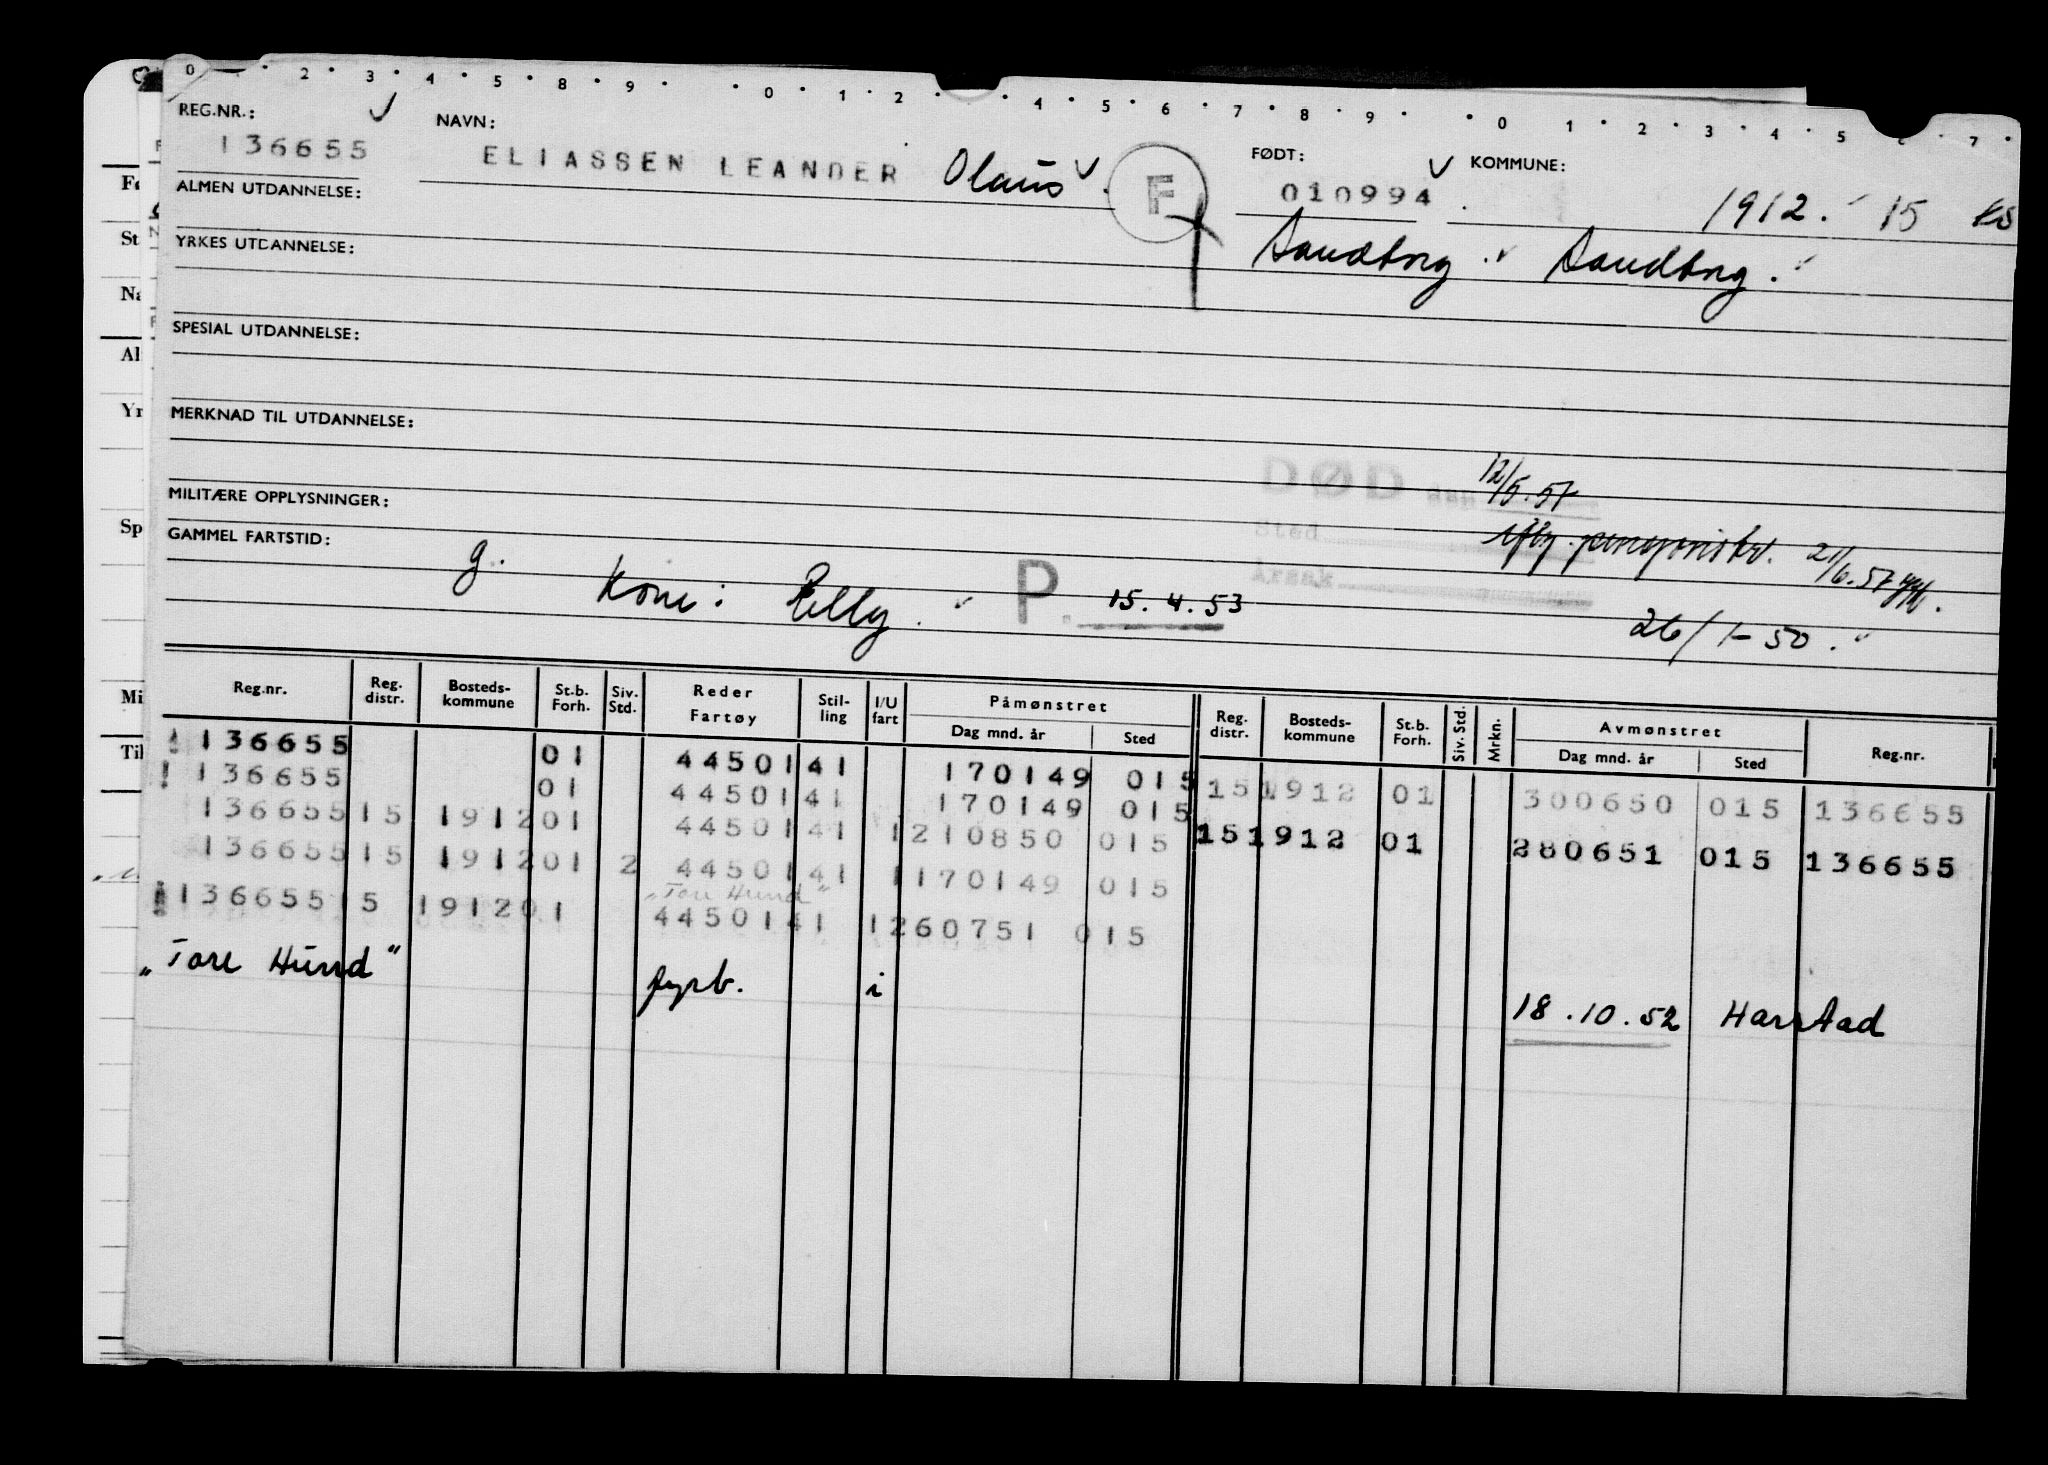 0 2 3 4 5 8 9 0 1 2 4 5 6 7 8 9 0 1 2 3 4 5 7
REG.NR.: NAVN: FØDT: KOMMUNE:
136655 ELIASSEN LEANDER Olaus F 010994 1912. 15
ALMEN UTDANNELSE:
YRKES UTDANNELSE: Sandtorg. Sandtorg.
SPESIAL UTDANNELSE:
MERKNAD TIL UTDANNELSE:
DØD den 12/5.57
MILITÆRE OPPLYSNINGER: Sted
GAMMEL FARTSTID: g. Årsak 21/6.57
Kone: P. 15.4.53
26/1-50.
Reg.nr. Reg. distr. Bosteds-kommune St.b. Forh. Siv. Std. Reder Fartøy Stil-ling I/U fart Påmønstret Dag mnd. år Sted Reg. distr. Bosteds-kommune St.b. Forh. Siv. Std. Mrkn. Avmønstret Dag mnd. år Sted Reg.nr.
136655 01 4450141 170149 015
136655 01 4450141 170149 015 151912 01 300650 015 136655
136655 15 191201 4450141 1210850 015 151912 01 280651 015 136655
136655 15 191201 2 4450141 1170149 015
„Tore Hund"
136655 15 191201 4450141 1260751 015
„Tore Hund" fyrb. i 18.10.52 Harstad
Fø
St
Na
Al
Yr
Sp
Mi
Til